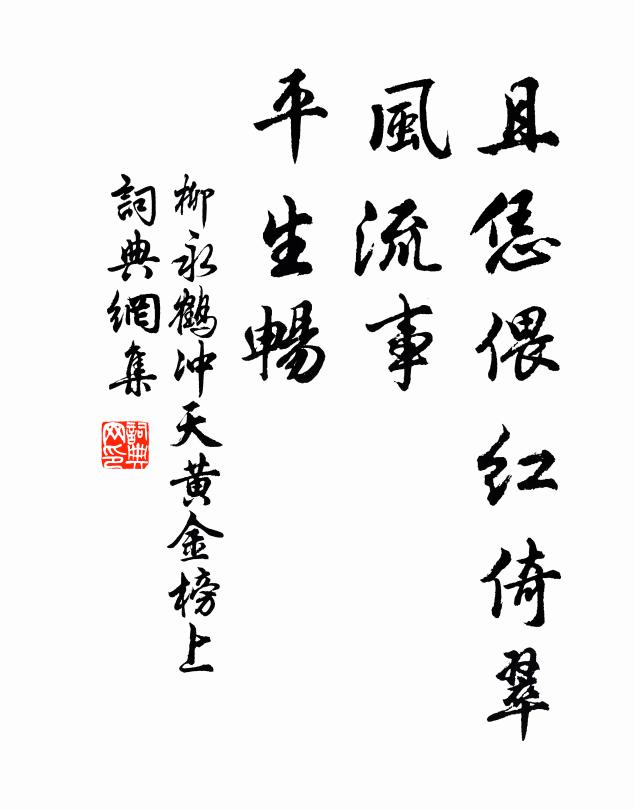 且恁偎紅倚翠
風流事
平生暢
柳永鶴沖天黃金榜上
詞典網集
詞典网印